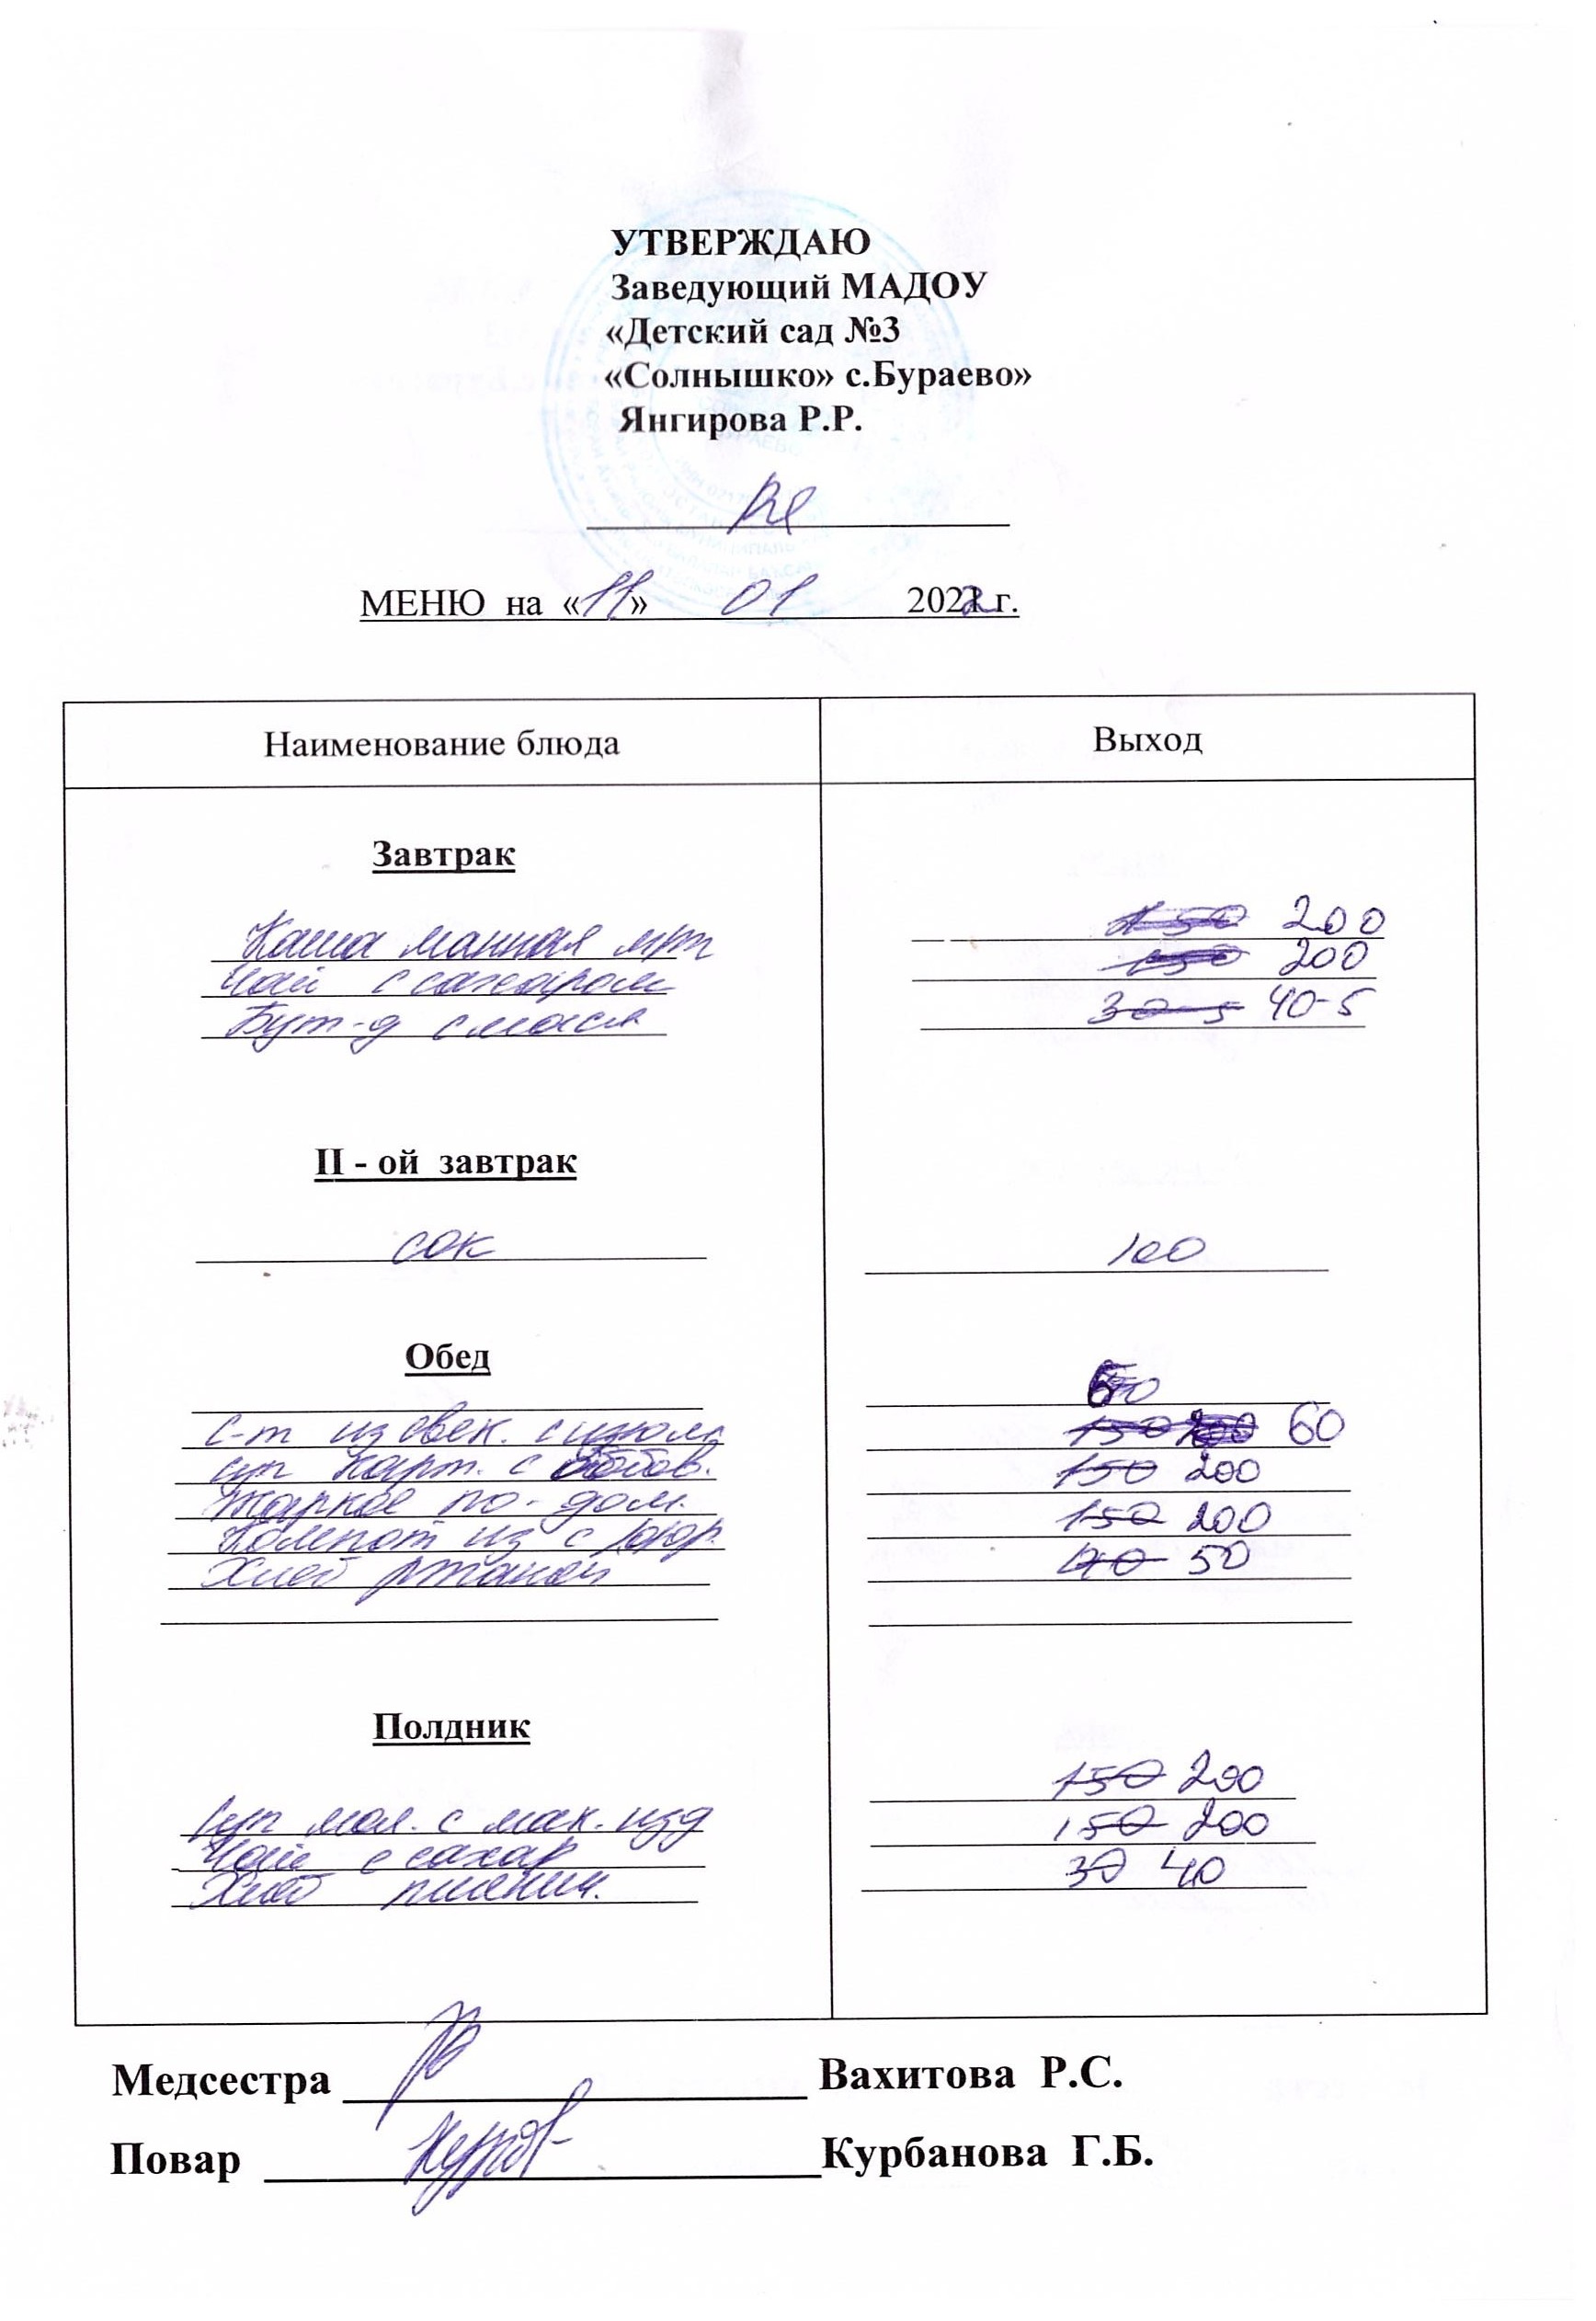 УТВЕРЖДАЮ
Заведующий МАДОУ
«Детский сад №3
«Солнышко» с.Бураево»
Янгирова Р.Р.
МЕНЮ на «11» 01 2022 г.
Наименование блюда Выход
Завтрак
Каша манная 200
Чай с сахаром 200
Бут-д с масл 30-5 40-5
II - ой завтрак
сок 100
Обед
С-т из свек. 60
суп карт. с бобов. 150 200
Жаркое по-дом. 150 200
Компот из с/фр. 50
Хлеб ржаной
Полдник
150 200
суп мол. с мак. изд 150 200
Чай с сахар 30 40
Хлеб пшенич.
Медсестра Вахитова Р.С.
Повар Курбанова Г.Б.